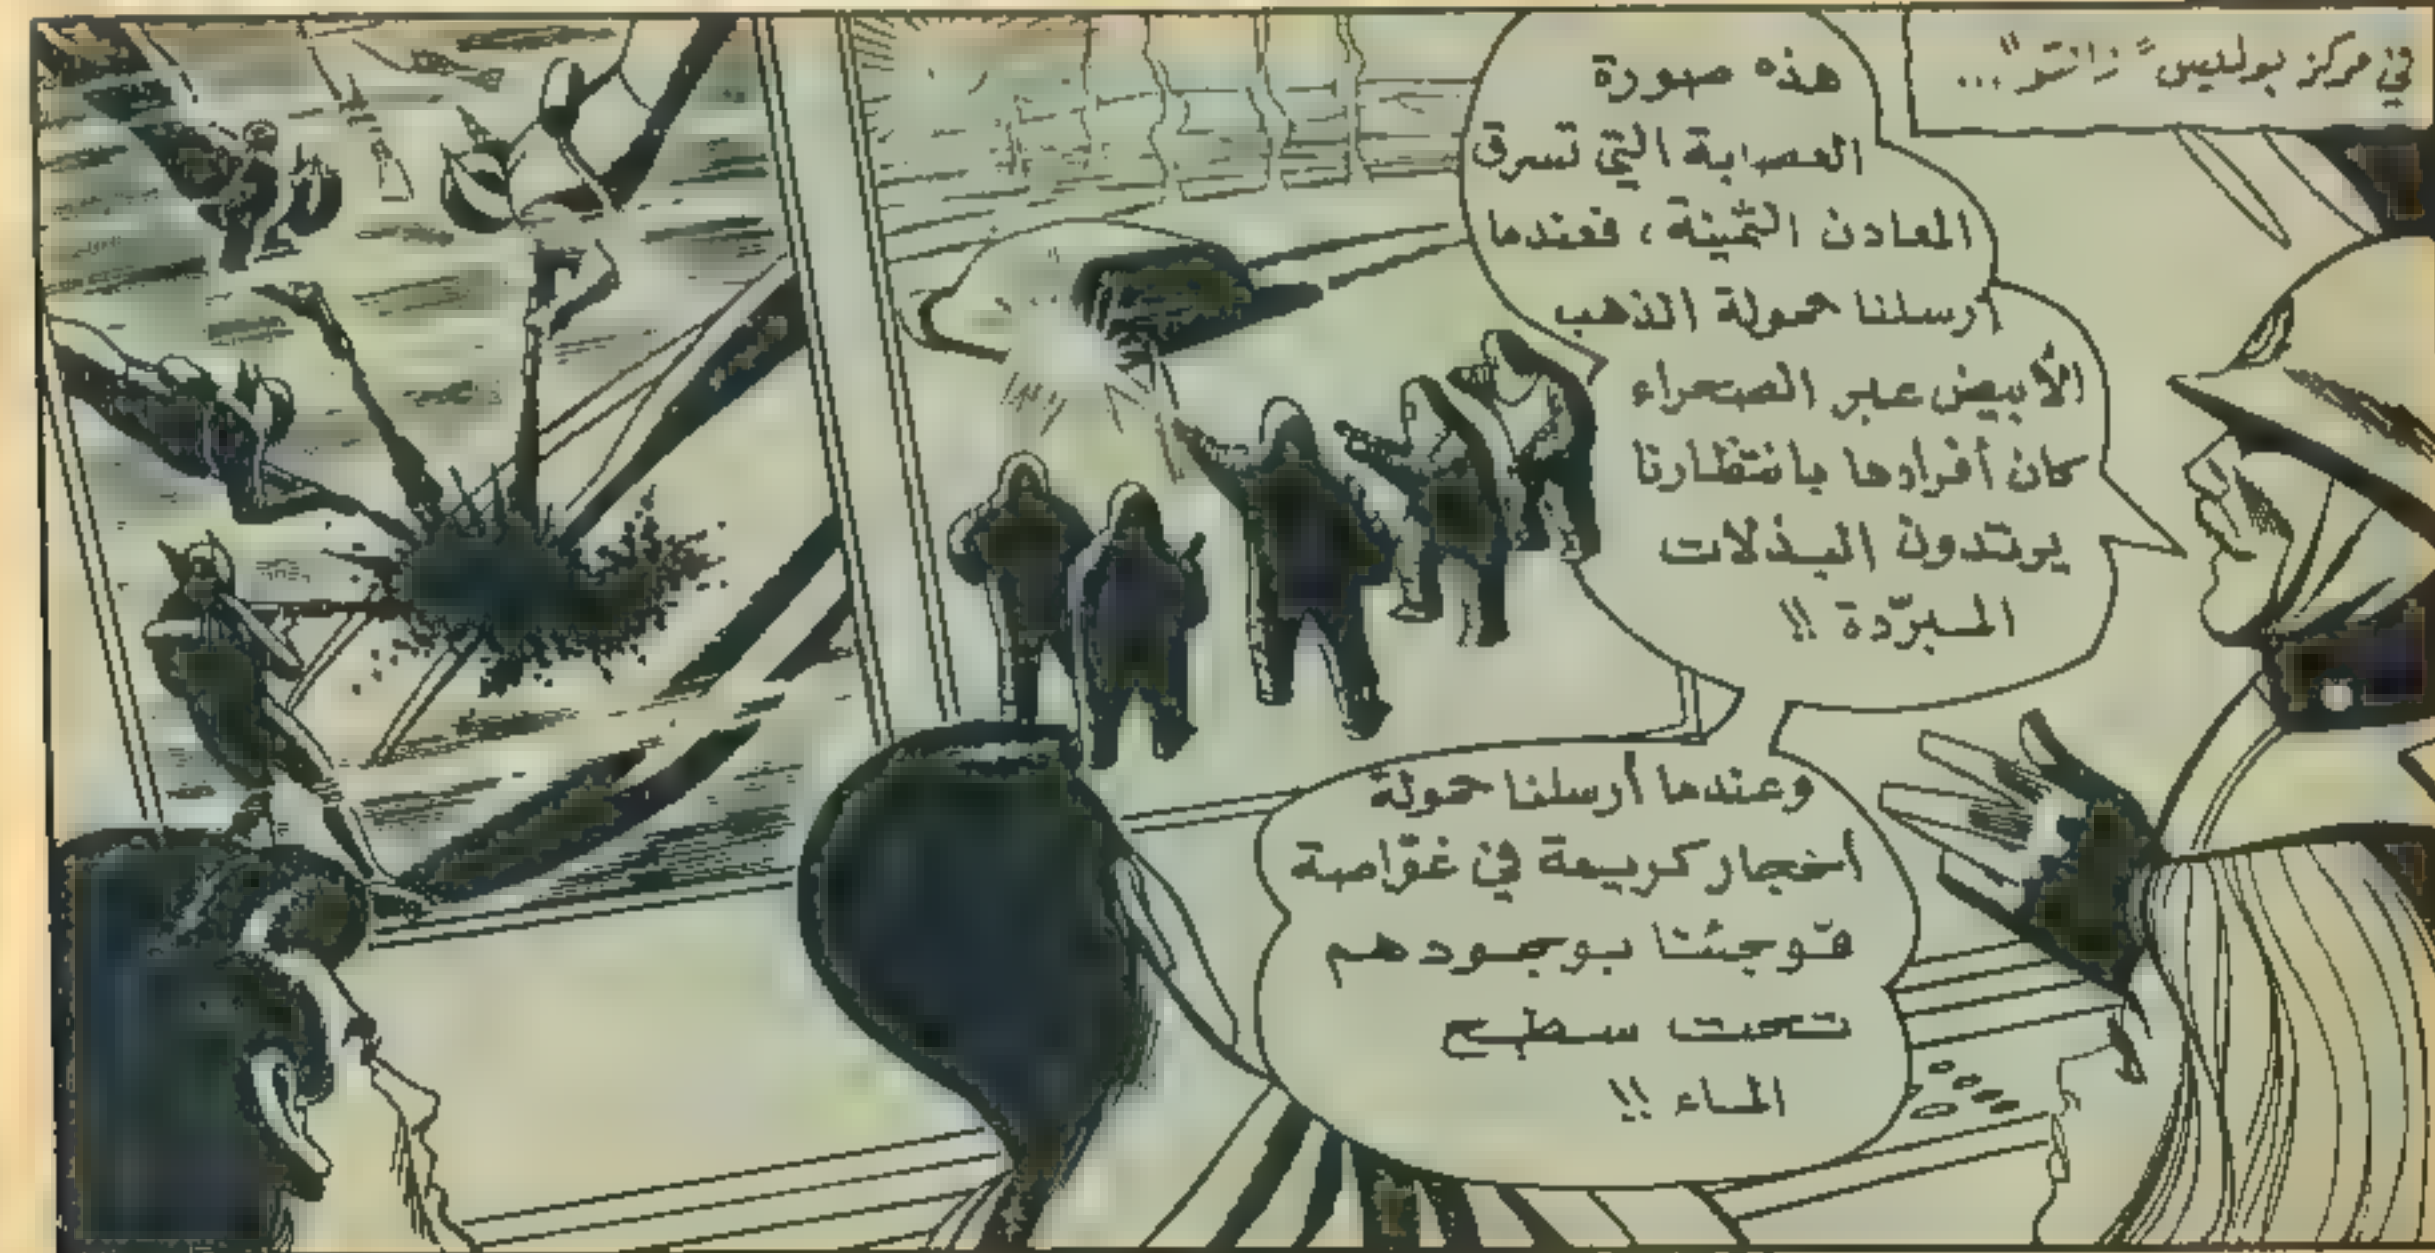 في مركز بوليس "زانتو"...
هذه صورة
العصابة التي تسرق
المعادن الثمينة، فعندما
أرسلنا حمولة الذهب
الأبيض عبر الصحراء
كان أفرادها بانتظارنا
يرتدون البذلات
المبرّدة !!
وعندما أرسلنا حمولة
أحجار كريمة في غوّاصة
فوجئنا بوجودهم
تحت سطح
الماء !!